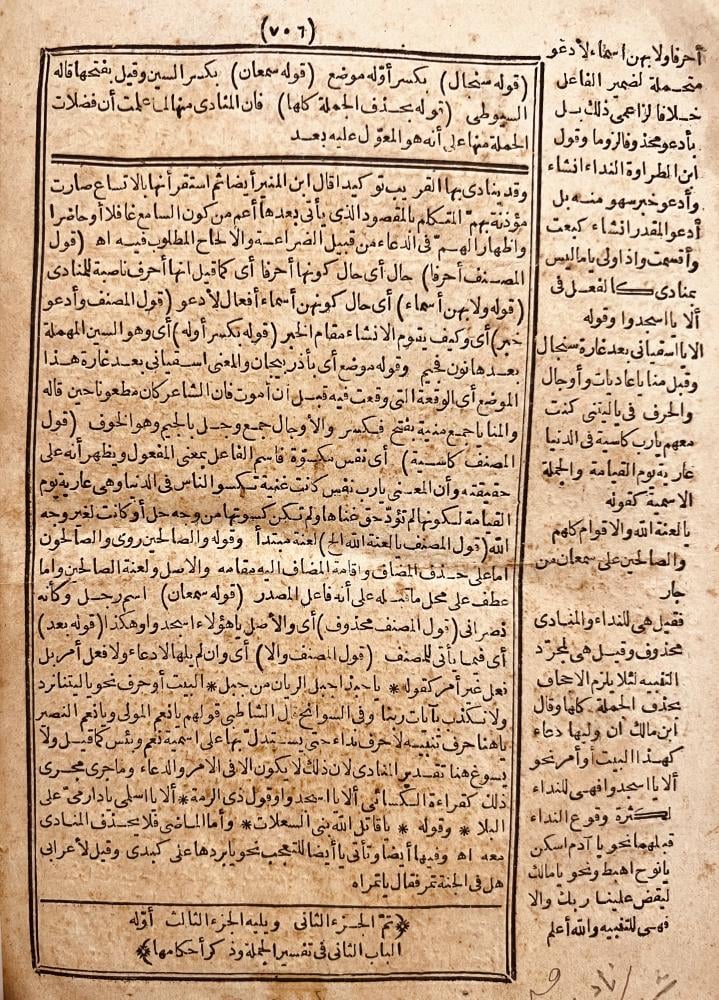 (٧٠٦)
(قوله سنجال) بكسر أوّله موضع (قوله سمعان) بكسر السين وقيل بفتحها قاله
السيوطى (قوله بحذف الجملة كلها) فان المنادى منها لما علمت أن فضلات
الجملة منها على أنه هو المعوّل عليه بعد
وقد ينادى بها القريب توكيدا قال ابن المنير أيضا ثم استقر أنها بالاتساع صارت
مؤذنة بهمّ المتكلم بالمقصود الذى يأتى بعدها أعم من كون السامع غافلا أو حاضرا
واظهار الهمّ فى الدعاء من قبيل الضراعة والالحاح المطلوب فيه اه (قول
المصنف أحرفا) حال أى حال كونها أحرفا أى كما قيل انها أحرف ناصبة للمنادى
(قوله ولا بهن أسماء) أى حال كونهن أسماء أفعال لأدعو (قول المصنف وأدعو
خبر) أى وكيف يقوم الانشاء مقام الخبر (قوله بكسر أوله) أى وهو السين المهملة
بعدها نون فجيم وقوله موضع أى بأذربيجان والمعنى اسقيانى بعد غارة هذا
الموضع أى الوقعة التى وقعت فيه قبل أن أموت فان الشاعر كان مطعونا حين قاله
والمنايا جميع منية بفتح فكسر والأوجال جمع وجل بالجيم وهو الخوف (قول
المصنف كاسية) أى نفس مكسوّة فاسم الفاعل بمعنى المفعول ويظهر أنه على
حقيقته وأن المعنى يارب نفس كانت غنية تكسو الناس فى الدنيا وهى عارية يوم
القيامة لكونها لم تؤدّ حق غناها ولم تكن كسوتها من وجه حل أو كانت لغير وجه
الله (قول المصنف يالعنة الله الخ) لعنة مبتدأ وقوله والصالحين روى والصالحون
اما على حذف المضاف واقامة المضاف اليه مقامه والاصل ولعنة الصالحين واما
عطف على محل ما قبله على أنه فاعل المصدر (قوله سمعان) اسم رجل وكأنه
نصرانى (قول المصنف محذوف) أى والأصل ياهؤلاء اسجدوا وهكذا (قوله بعد)
أى فيما يأتى للمصنف (قول المصنف والا) أى وان لم يلها الادعاء ولا فعل أمر بل
فعل غير أمر كقوله * ياحبذا جبل الريان من جبل * البيت أو حرف نحو ياليتنا نرد
ولا نكذب بآيات ربنا وفى السوانح قال الشاطبى قولهم يانعم المولى ويانعم النصير
ياهنا حرف تنبيه لا حرف نداء حتى يستدلّ بها على اسمية نعم وبئس كما قيل ولا
يسوغ هنا تقدير المنادى لان ذلك لا يكون الا فى الامر والدعاء وما جرى مجرى
ذلك كقراءة الكسائى ألا يا اسجدوا وقول ذى الرمة * ألا يا اسلمى يا دارمىّ على
البلا * وقوله * ياقاتل الله بنى السعلات * وأما الماضى فلا يحذف المنادى
معه اه وفيها أيضا وتأتى يا أيضا للتعجب نحو يابردها على كبدى وقيل لأعرابى
هل فى الجنة تمر فقال ياتمراه
﴿تمّ الجزء الثانى ويليه الجزء الثالث أوّله
الباب الثانى فى تفسير الجملة وذكر أحكامها﴾
أحرفا ولا بهن أسماء لأدعو
متحملة لضمير الفاعل
خلافا لزاعمى ذلك بل
بأدعو محذوفا لزوما وقول
ابن الطراوة النداء انشاء
وأدعو خبر سهو منه بل
أدعو المقدر انشاء كبعت
وأقسمت واذا ولى يا ما ليس
بمنادى كالفعل فى
ألا يا اسجدوا وقوله
الايا اسقيانى بعد غارة سنجال
وقبل منايا عاديات وأوجال
والحرف فى ياليتنى كنت
معهم يارب كاسية فى الدنيا
عارية يوم القيامة والجملة
الاسمية كقوله
يالعنة الله والاقوام كلهم
والصالحين على سمعان من
جار
فقيل هى للنداء والمنادى
محذوف وقيل هى لمجرّد
التنبيه لئلا يلزم الاجحاف
بحذف الجملة كلها وقال
ابن مالك ان وليها دعاء
كهذا البيت أو أمر نحو
ألا يا اسجدوا فهى للنداء
لكثرة وقوع النداء
قبلهما نحو يا آدم اسكن
يانوح اهبط ونحو يا مالك
ليقض علينا ربك والا
فهى للتنبيه والله أعلم